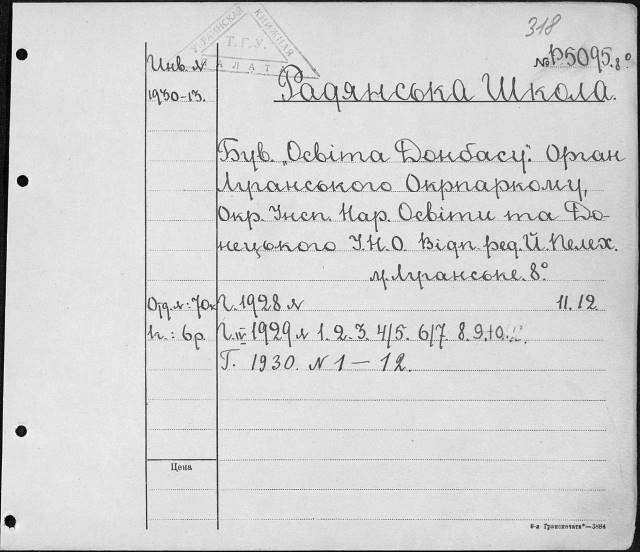 318
УКРАИНСКАЯ КНИЖНАЯ ПАЛАТА
Т.Г.У.
Инв. №
№ Р5095. 8°
1930-13.
Радянська Школа.
Був. „Освіта Донбасу". Орган
Луганського Окрпаркому,
Окр. Інсп. Нар. Освіти та До-
нецького І.Н.О. Відп. ред. Й. Пелех.
м. Луганське. 8°
Отд. №: 70к
Г. 1928 № 11. 12.
К.: 6р.
Г. IV 1929 № 1. 2. 3. 4/5. 6/7. 8. 9. 10.
Г. 1930. № 1 — 12.
Цена